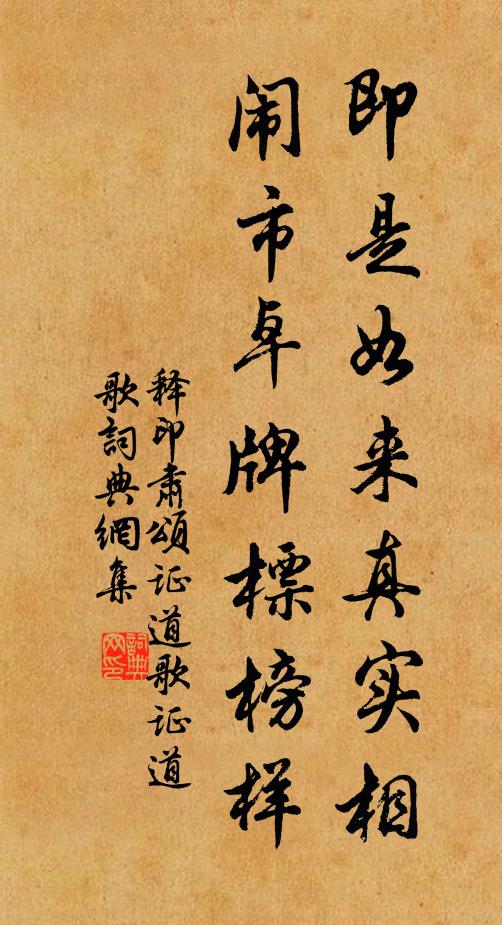 即是如来真实相
闹市卓牌標榜样
释印肃頌证道歌证道
歌詞典網集
詞典网印